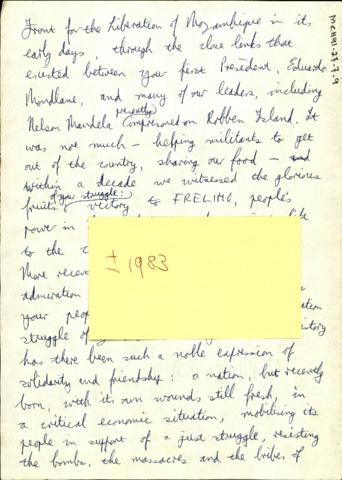 Front for the Liberation of Mozambique in its
early days through the close links that
existed between your first President, Eduardo
Mondlane, and many of our leaders, including
Nelson Mandela presently imprisoned on Robben Island. It
was not much – helping militants to get
out of the country, sharing our food – and
within a decade we witnessed the glorious
fruits of your struggle: victory to FRELIMO, people's
power in
to the
More recen
admiration
your peop
struggle of
has there been such a noble expression of
solidarity and friendship: a nation, but recently
born, with its own wounds still fresh, in
a critical economic situation, mobilising its
people in support of a just struggle, resisting
the bombs, the massacres and the bribes of
± 1983
MCH91-27-7-9